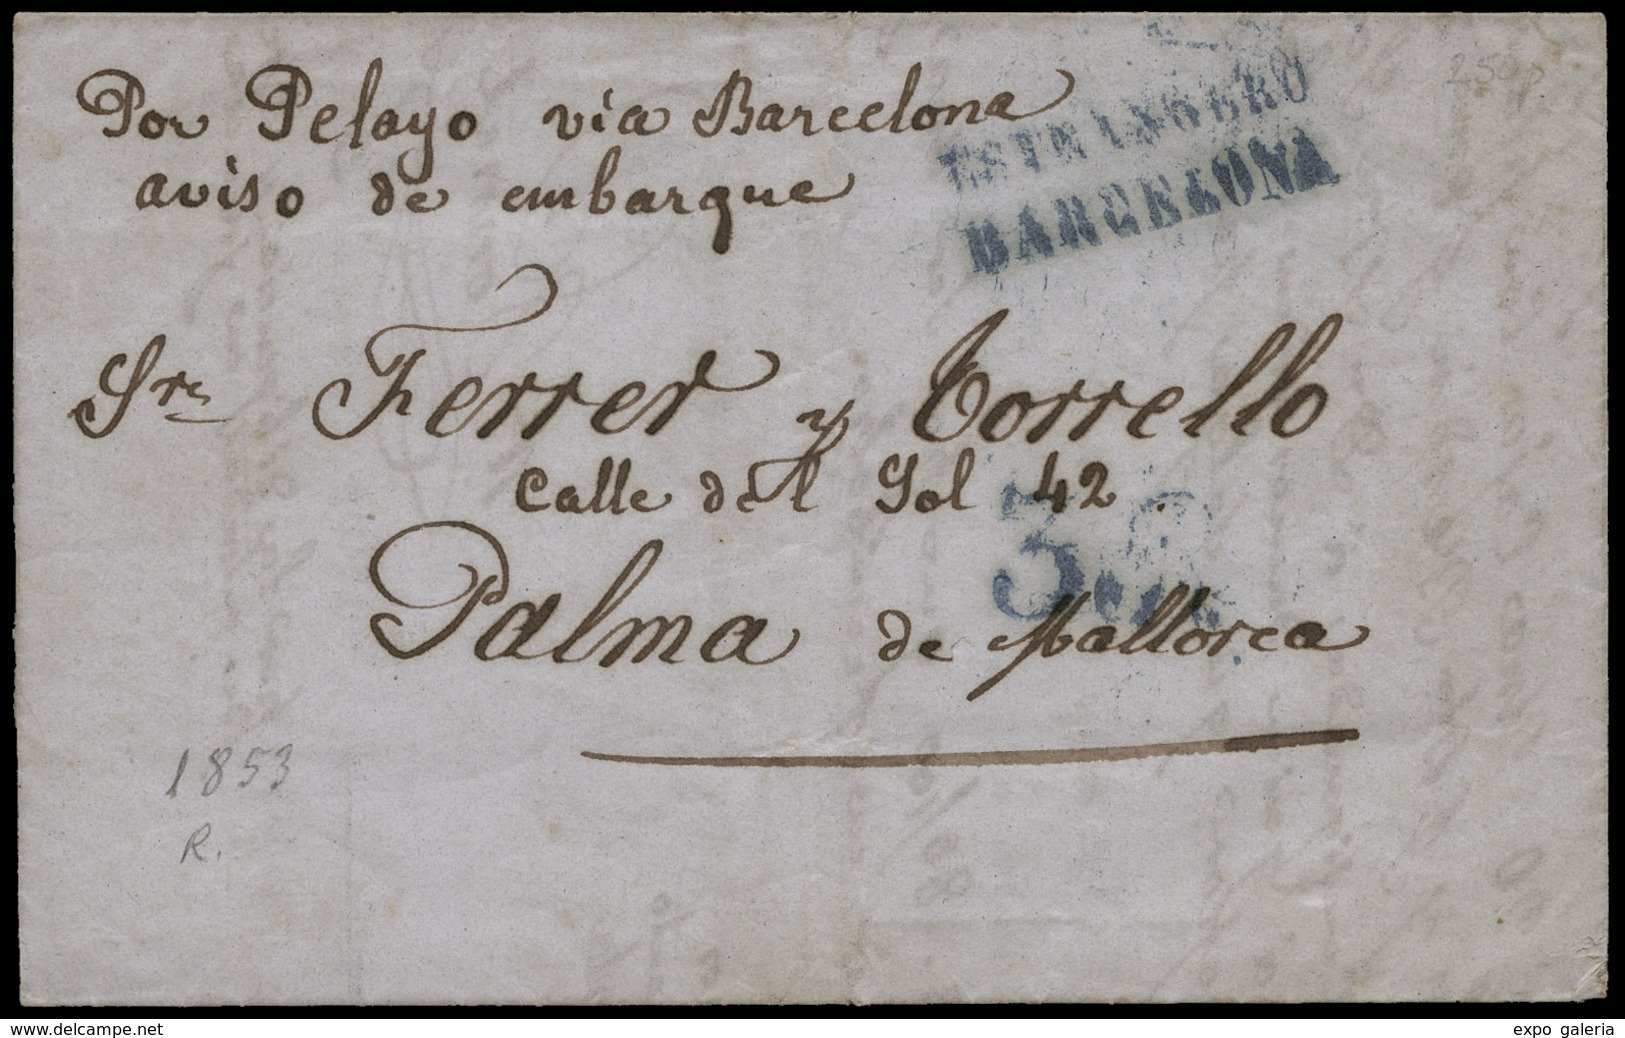 Por Pelayo via Barcelona
aviso de embarque
ESTRANGERO
BARCELONA
250p
Srs Ferrer y Torrello
Calle del Sol 42
3
Palma de Mallorca
1853
R.
www.delcampe.net
expo galeria